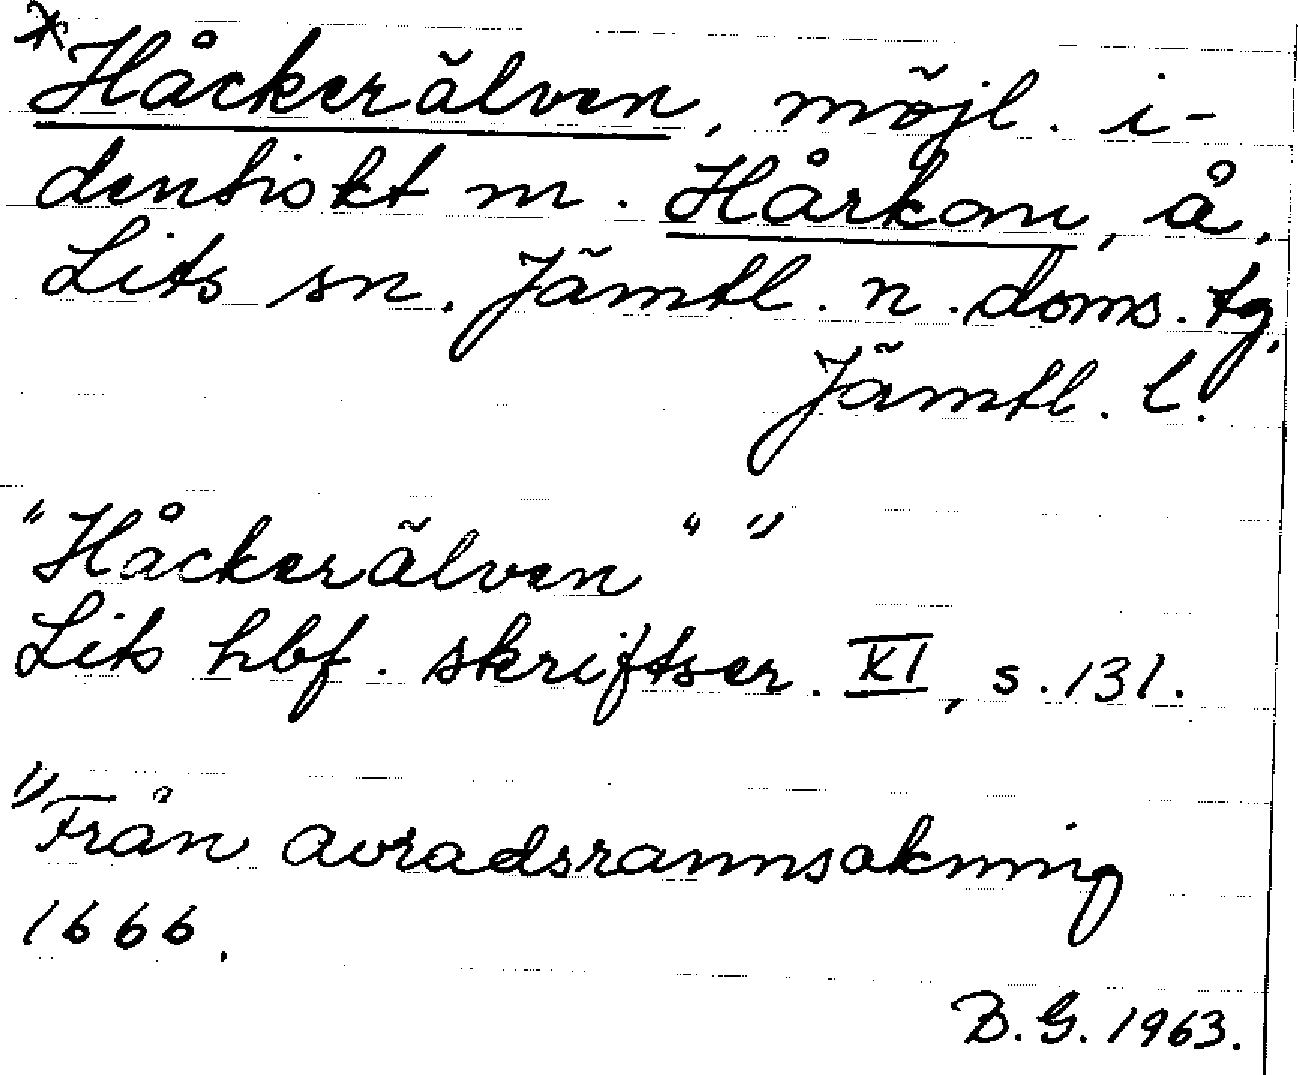 *Håckerälven, möjl. i-
dentiskt m. Hårkan, å,
Lits sn. Jämtl. n. doms. tg.
Jämtl. l.
"Håckerälven" 1)
Lits hbf. skriftser. XI, s. 131.
1) Från avradsrannsakning
1666.
B. G. 1963.